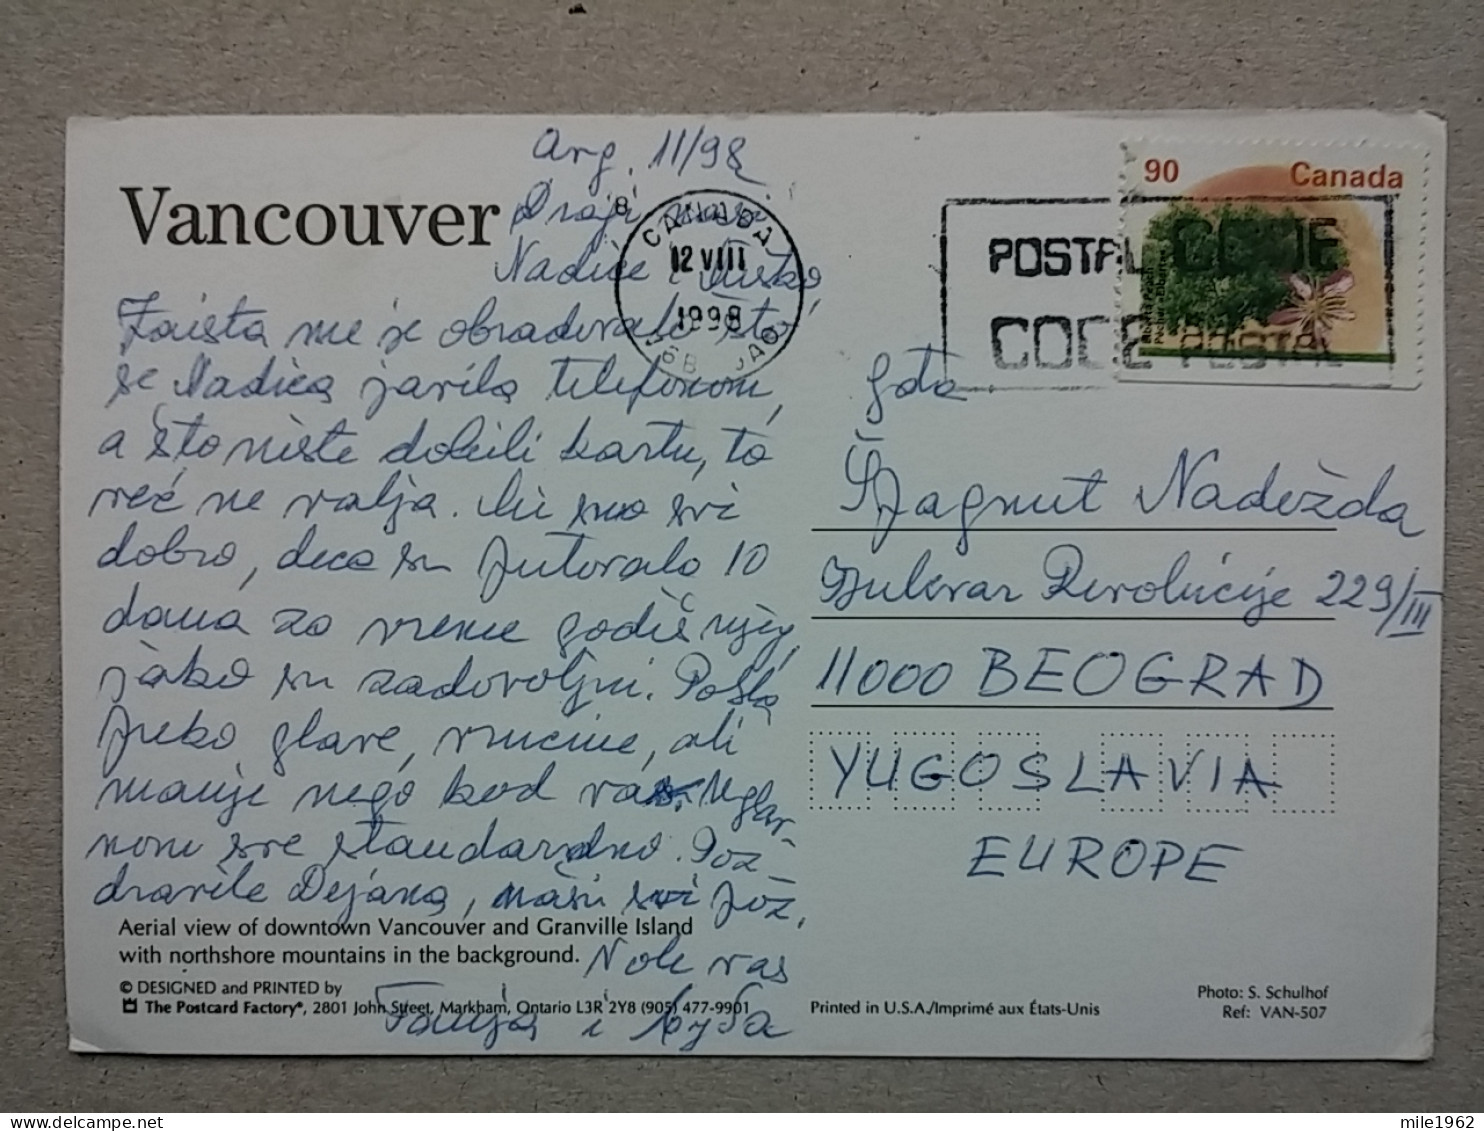 Avg. 11/98
Vancouver
Dragi naši
Nadice i Duško
Zaista me je obradovalo što
se Nadica javila telefonom,
a što niste dobili kartu, to
već ne valja. Mi smo svi
dobro, deca su putovala 10
dana za vreme godišnjeg,
jako su zadovoljni. Posla
preko glave, vrućine, ali
manje nego kod vas. Uglav-
nom sve standardno. Poz-
dravite Dejana, naši svi poz.
Vole vas
Tanja i
Aerial view of downtown Vancouver and Granville Island
with northshore mountains in the background.
© DESIGNED and PRINTED by
The Postcard Factory®, 2801 John Street, Markham, Ontario L3R 2Y8 (905) 477-9901
Printed in U.S.A./Imprimé aux États-Unis
Photo: S. Schulhof
Ref: VAN-507
8
CANADA
12 VIII
1998
POSTAL CODE
CODE POSTAL
90 Canada
gđa
Špagnut Nadežda
Bulevar Revolucije 229/III
11000 BEOGRAD
YUGOSLAVIA
EUROPE
mile1962